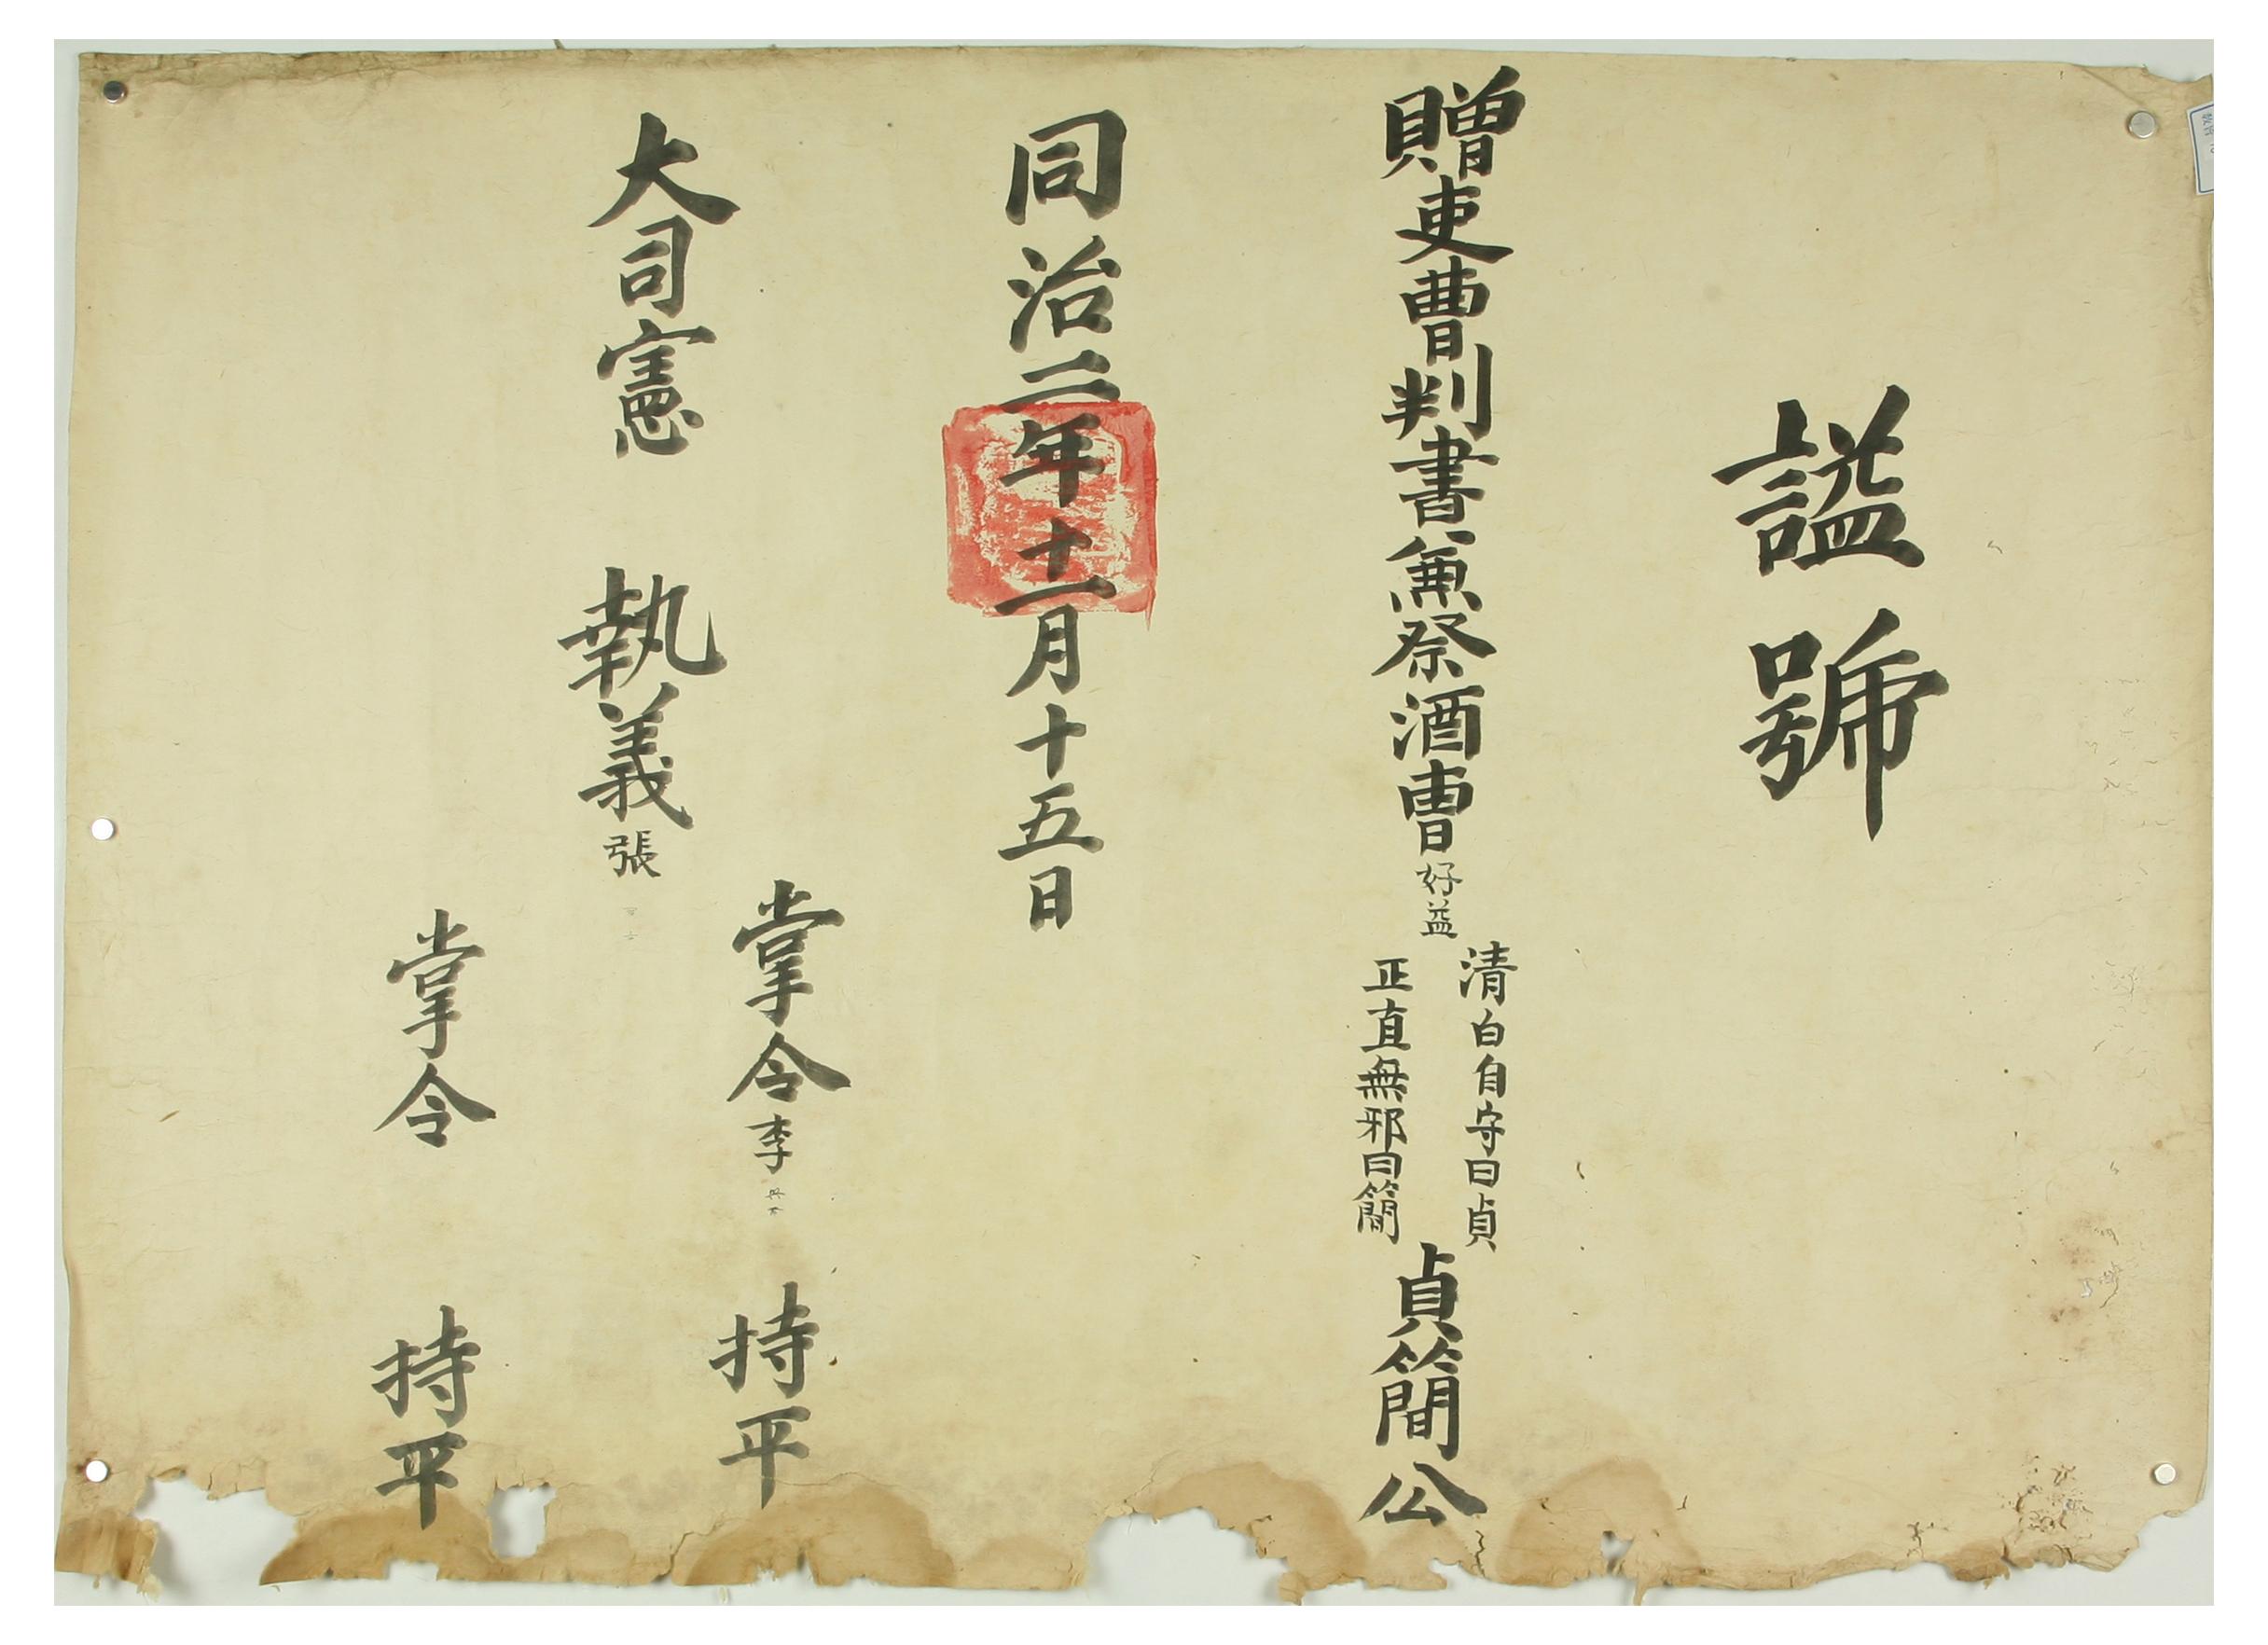 諡號
贈吏曹判書兼祭酒曺好益
清白自守曰貞
正直無邪曰簡
貞簡公
同治二年十一月十五日
大司憲
執義張
掌令李
持平
掌令
持平